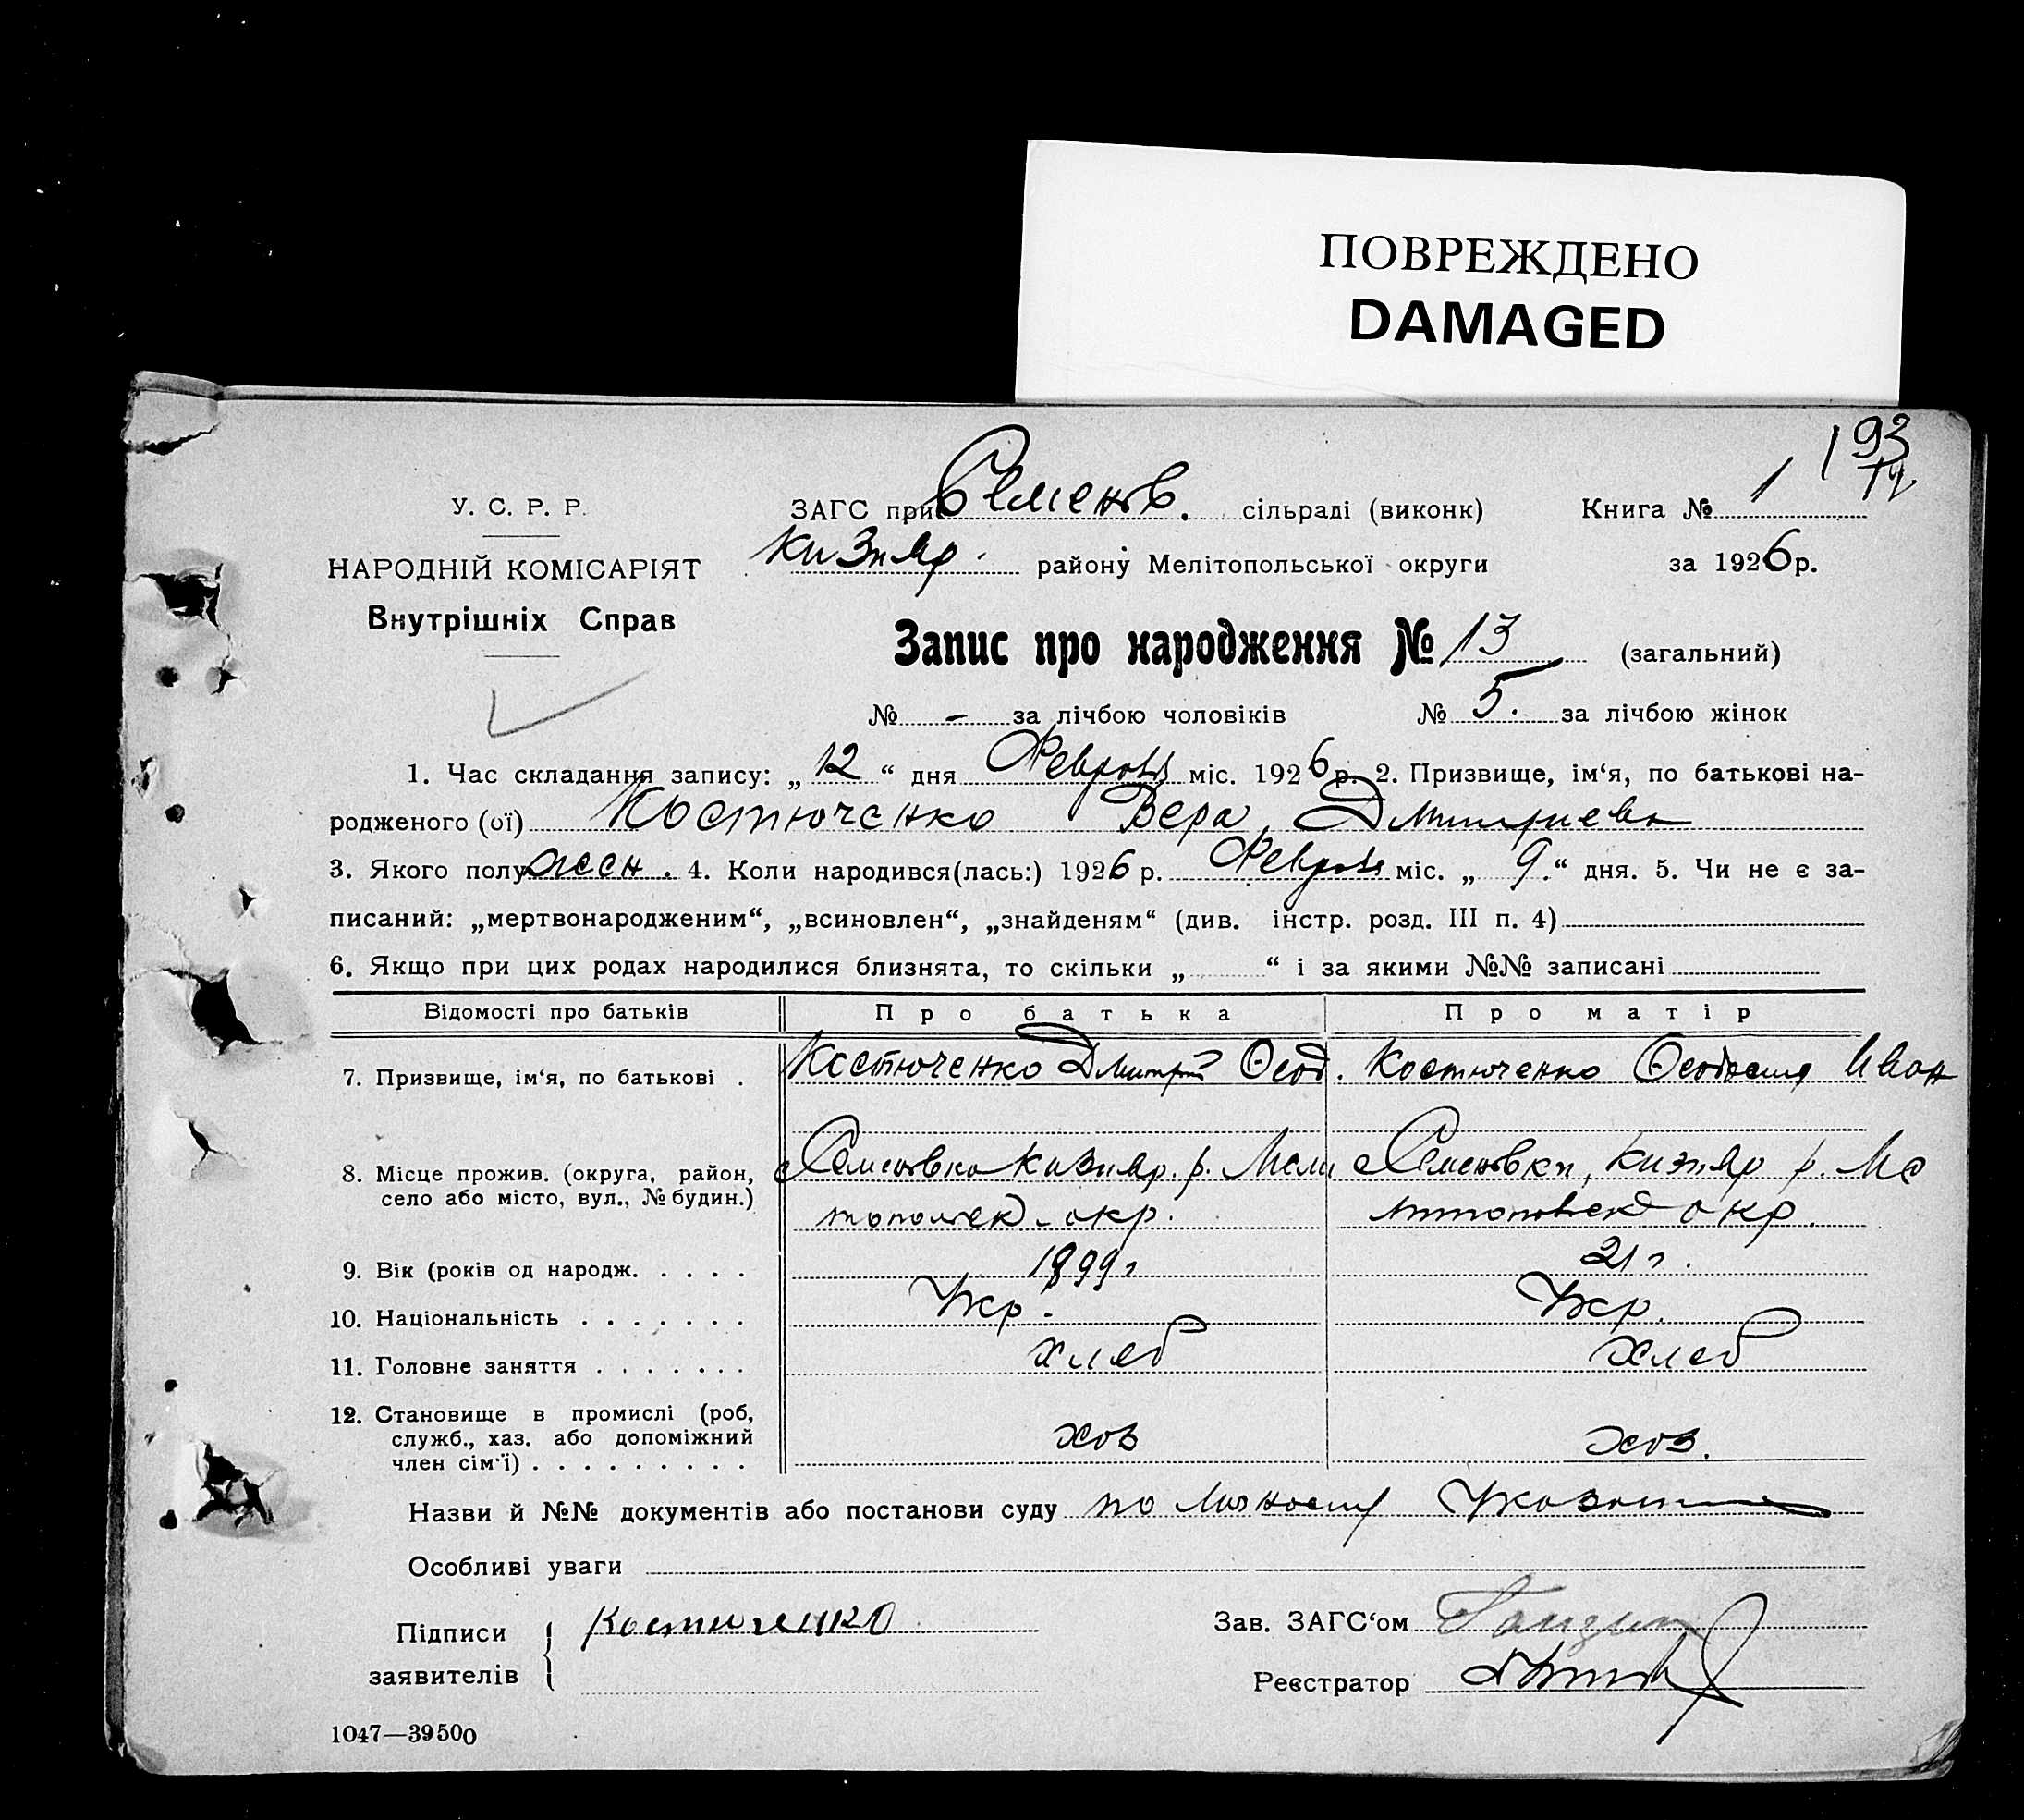 ПОВРЕЖДЕНО
DAMAGED
193
У. С. Р. Р.
ЗАГС при Семенов. сільраді (виконк)
Книга № 1
НАРОДНІЙ КОМІСАРІЯТ
Внутрішніх Справ
Кизияр. району Мелітопольської округи
за 1926 р.
Запис про народження № 13 (загальний)
№ - за лічбою чоловіків № 5. за лічбою жінок
1. Час складання запису: „ 12 “ дня Февраля міс. 1926 р. 2. Призвище, ім‘я, по батькові на-
родженого (ої) Костюченко Вера Дмитриевн
3. Якого полу жен. 4. Коли народився(лась:) 1926 р. Февраля міс. „ 9. “ дня. 5. Чи не є за-
писаний: „мертвонародженим“, „всиновлен“, „знайденям“ (див. інстр. розд. III п. 4)
6. Якщо при цих родах народилися близнята, то скільки „ “ і за якими №№ записані
Відомості про батьків Про батька Про матір
7. Призвище, ім‘я, по батькові . Костюченко Дмитрий Феод. Костюченко Феодосия Иван
8. Місце прожив. (округа, район, Семеновка Кизияр. р. Мели Семеновка, Кизияр р. Ме
село або місто, вул., № будин.) топольск. окр. литопольск окр.
9. Вік (років од народж. . . . . 1899 г 21 г.
10. Національність . . . . . . . Укр. Укр.
11. Головне заняття . . . . . . . хлеб хлеб
12. Становище в промислі (роб,
служб., хаз. або допоміжний хоз хоз.
член сім‘ї) . . . . . . . . .
Назви й №№ документів або постанови суду по личному
Особливі уваги
Підписи Костюченко Зав. ЗАГС‘ом
заявителів Реєстратор
1047—39500